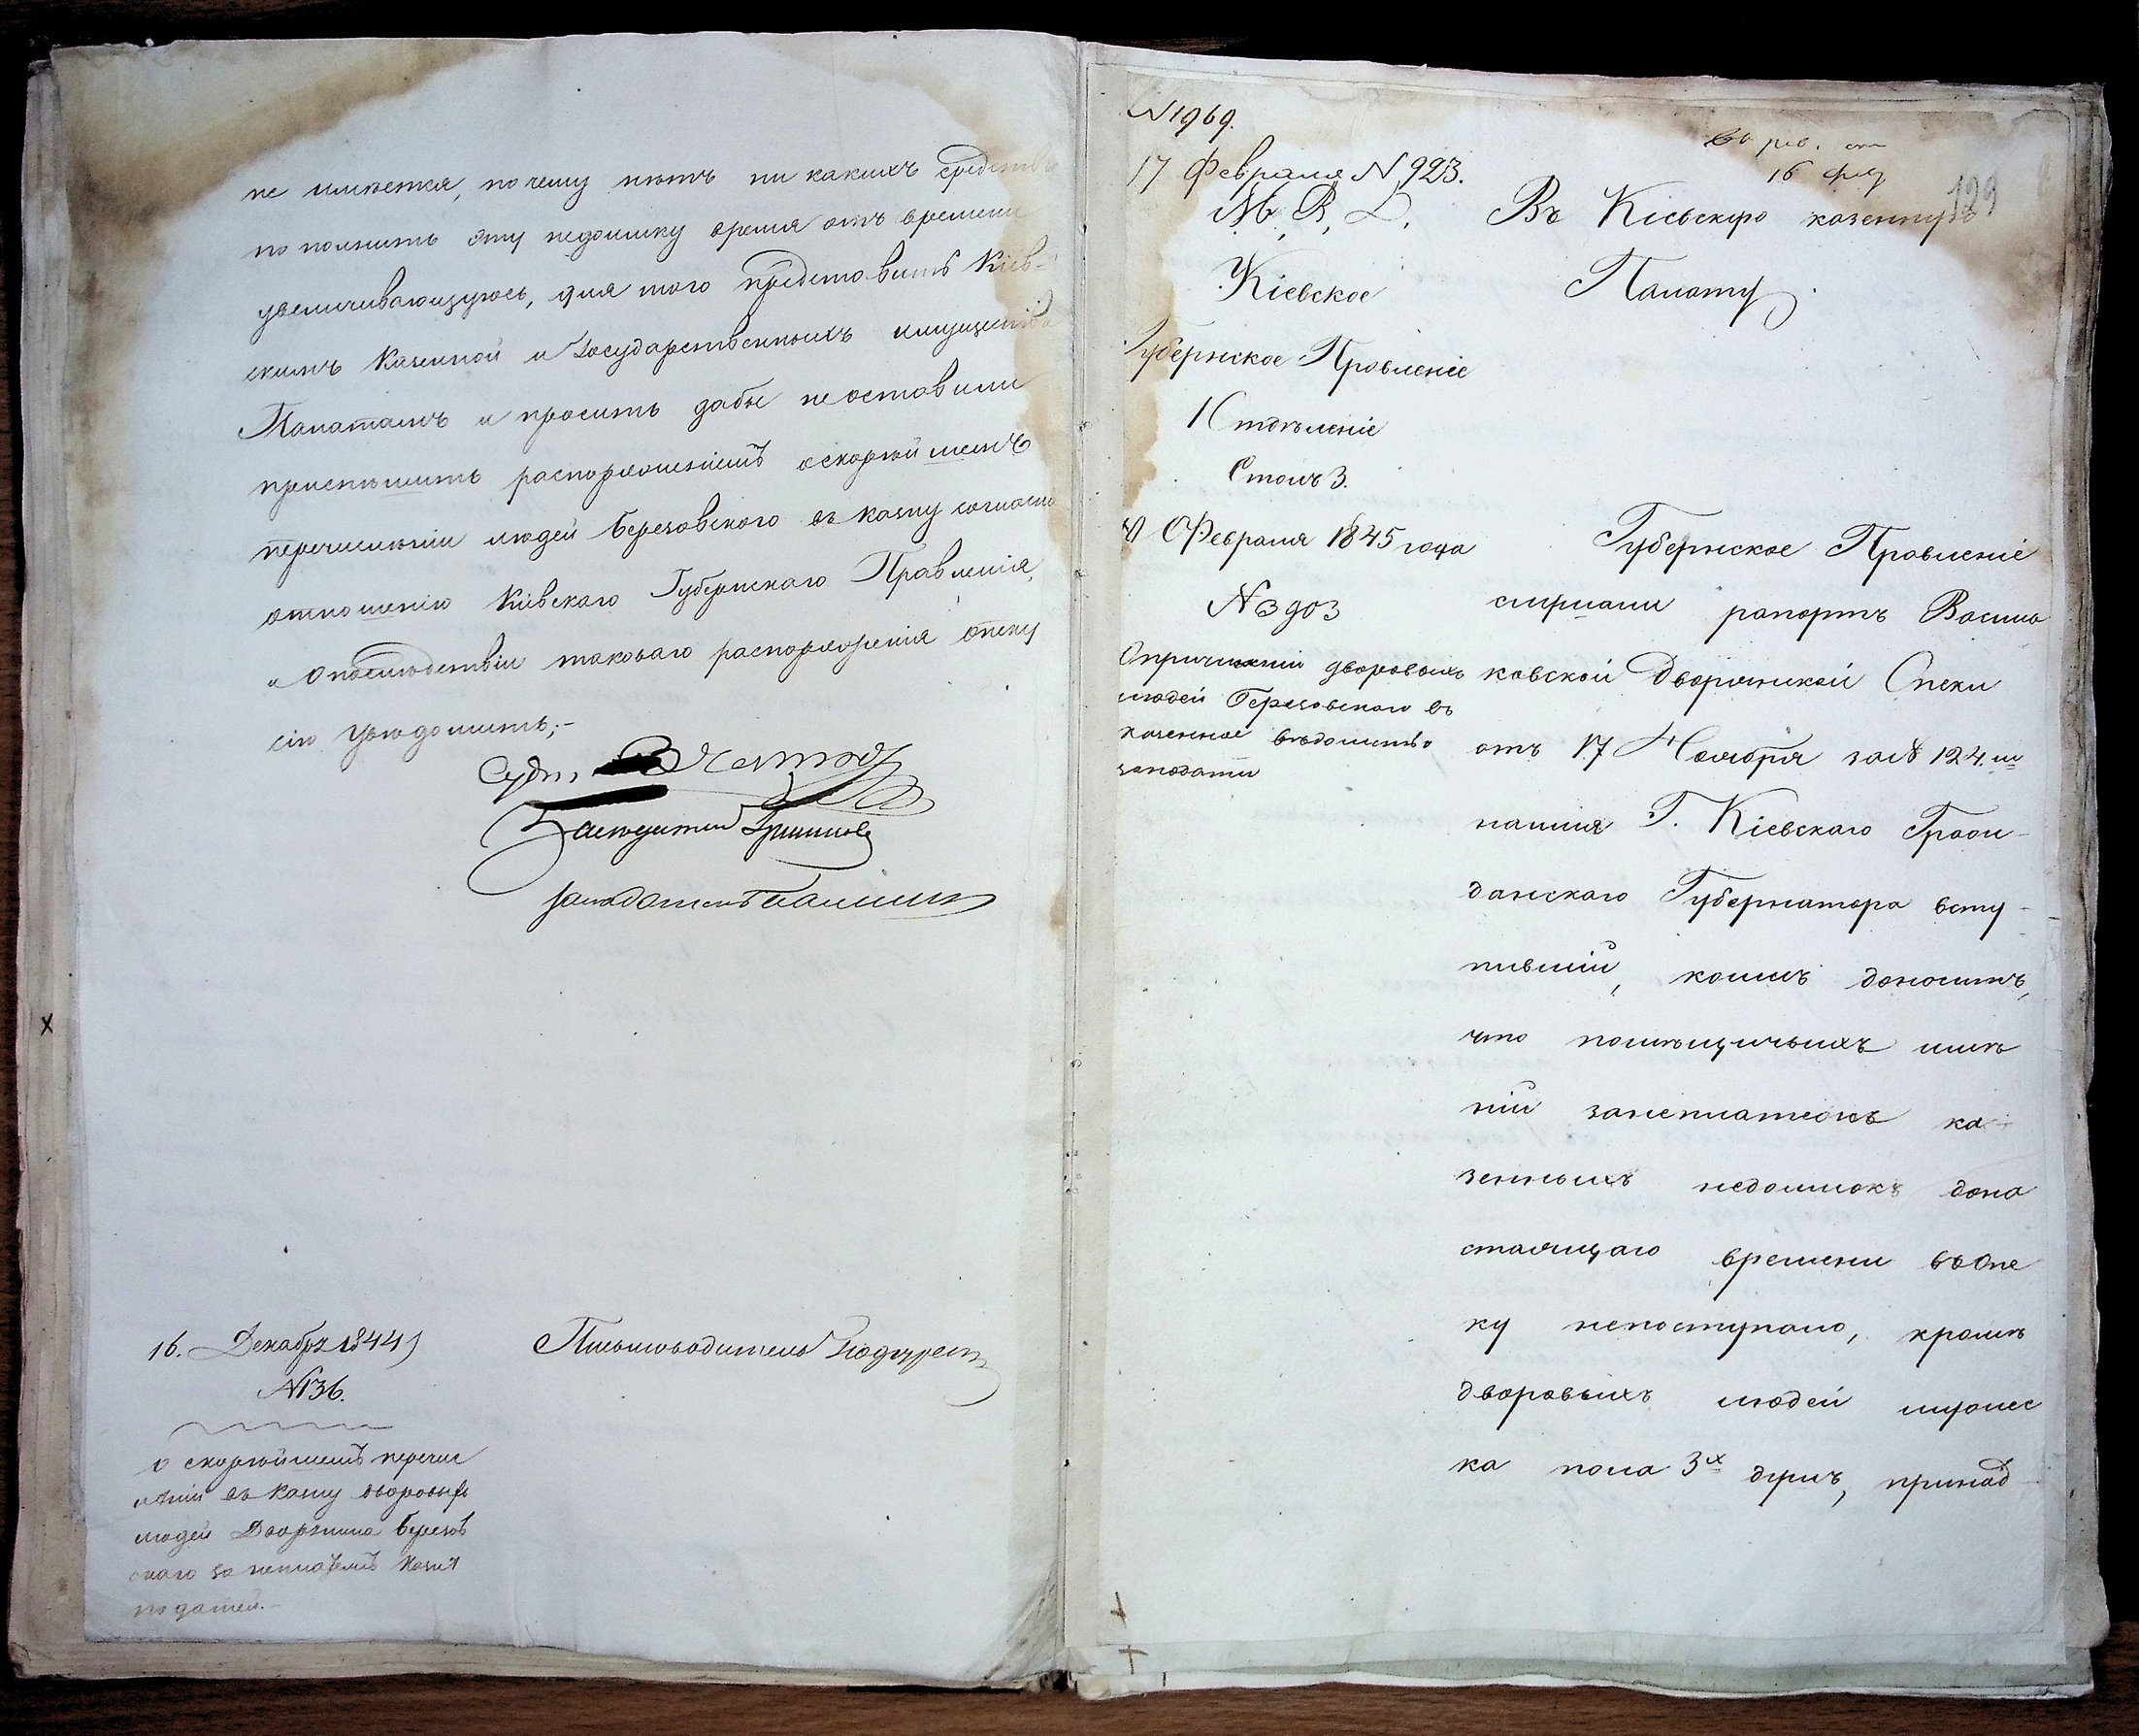 не имѣется, почему нѣтъ ни какихъ средствъ
пополнить эту недоимку время отъ времени
увеличивающуюсь, для того предстовить Кіев-
скимъ Казенной и Государственныхъ имуществъ
Палатамъ и просить дабы не оставили
приспѣшить распоряженіемъ о скорѣйшемъ
перечисленіи людей Березовского въ казну согласно
отношенію Кіевскаго Губернскаго Правленія,
и о послѣдствіи таковаго распоряженія опеку
сію увѣдомить;-
Судья
Засѣдатель
Засѣдатель
16. Декабря 1844
Письмоводитель
№ 136.
о скорѣйшемъ перечис
леніи въ казну дворовыхъ
людей Дворянина Березов
скаго за неплатежъ казен
податей.-
№ 1969.
17 Февраля № 923.
16 фев
129
М. В. Д.
Кіевское
Губернское Провленіе
Отдѣленіе
Столъ 3.
Февраля 1845 года
№ 3903
О причисленіи дворовыхъ
людей Березовского въ
казенное вѣдомство
за подати
Въ Кіевскую казенную
Палату.
Губернское Провленіе
слушали рапортъ Василь
ковской Дворянской Опеки
отъ 17 Ноября за № 124. на
имя Г. Кіевскаго Гражи-
данскаго Губернатора всту-
пившій, коимъ доноситъ,
что помѣщичьихъ имѣ
ній за неплатежъ ка-
зенныхъ недоимокъ дона
стаящаго времени въ Опе
ку непоступало, кромѣ
дворовыхъ людей мужес
ка пола 3х душъ, принад